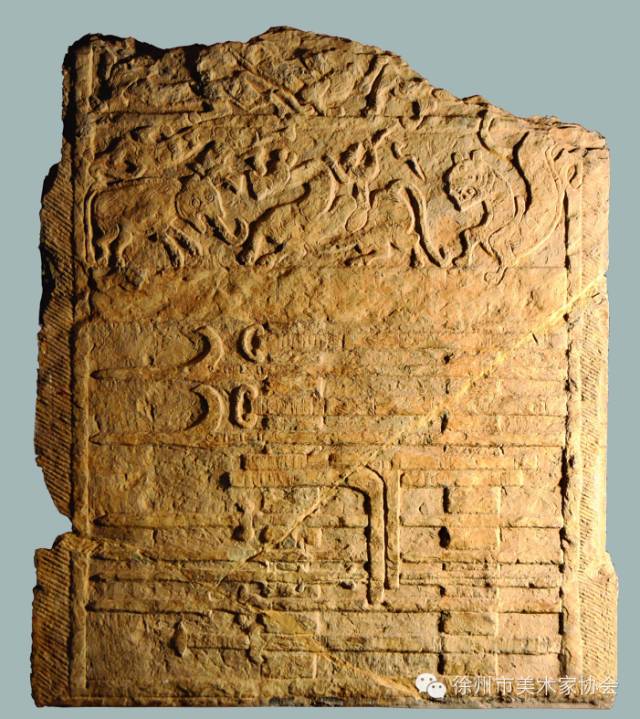 徐州市美术家协会